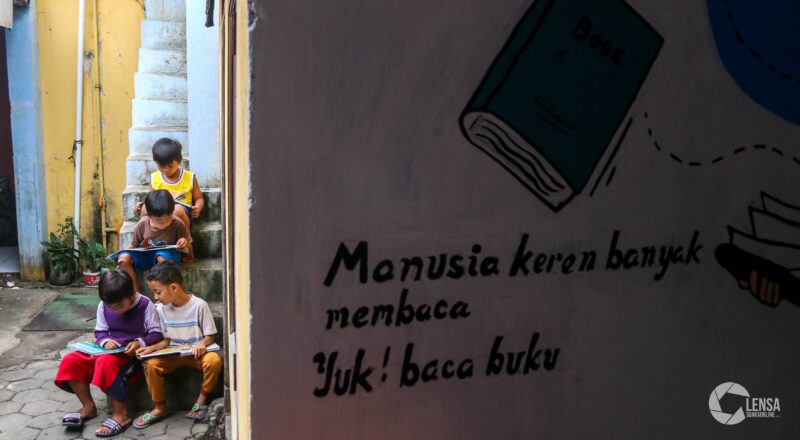 Book
Manusia keren banyak
membaca
Yuk! baca buku
LENSA
SUAKAONLINE.COM